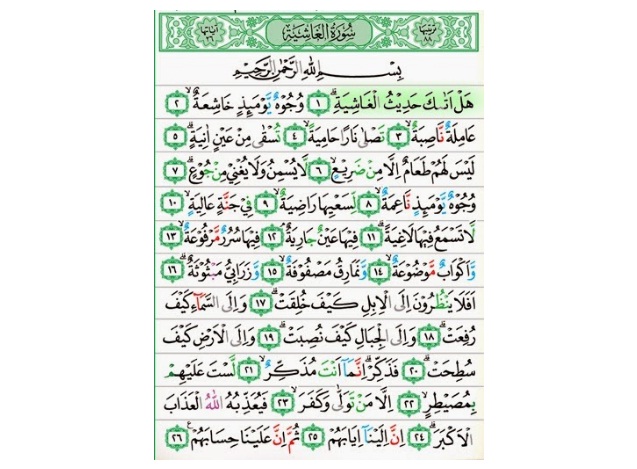 ترتيبها ٨٨ سُورَةُ الْغَاشِيَةِ آياتها ٢٦
بِسْمِ اللهِ الرَّحْمٰنِ الرَّحِيْمِ
هَلْ اَتٰىكَ حَدِيْثُ الْغَاشِيَةِۗ ١ وُجُوْهٌ يَّوْمَىِٕذٍ خَاشِعَةٌ ۙ ٢
عَامِلَةٌ نَّاصِبَةٌ ۙ ٣ تَصْلٰى نَارًا حَامِيَةً ۙ ٤ تُسْقٰى مِنْ عَيْنٍ اٰنِيَةٍ ۗ ٥
لَيْسَ لَهُمْ طَعَامٌ اِلَّا مِنْ ضَرِيْعٍ ۙ ٦ لَّا يُسْمِنُ وَلَا يُغْنِيْ مِنْ جُوْعٍ ۗ ٧
وُجُوْهٌ يَّوْمَىِٕذٍ نَّاعِمَةٌ ۙ ٨ لِّسَعْيِهَا رَاضِيَةٌ ۙ ٩ فِيْ جَنَّةٍ عَالِيَةٍ ۙ ١٠
لَّا تَسْمَعُ فِيْهَا لَاغِيَةً ۗ ١١ فِيْهَا عَيْنٌ جَارِيَةٌ ۘ ١٢ فِيْهَا سُرُرٌ مَّرْفُوْعَةٌ ۙ ١٣
وَّاَكْوَابٌ مَّوْضُوْعَةٌ ۙ ١٤ وَّنَمَارِقُ مَصْفُوْفَةٌ ۙ ١٥ وَّزَرَابِيُّ مَبْثُوْثَةٌ ۗ ١٦
اَفَلَا يَنْظُرُوْنَ اِلَى الْاِبِلِ كَيْفَ خُلِقَتْ ۗ ١٧ وَاِلَى السَّمَاۤءِ كَيْفَ
رُفِعَتْ ۗ ١٨ وَاِلَى الْجِبَالِ كَيْفَ نُصِبَتْ ۗ ١٩ وَاِلَى الْاَرْضِ كَيْفَ
سُطِحَتْ ۗ ٢٠ فَذَكِّرْ ۗ اِنَّمَآ اَنْتَ مُذَكِّرٌ ۙ ٢١ لَّسْتَ عَلَيْهِمْ
بِمُصَيْطِرٍ ۙ ٢٢ اِلَّا مَنْ تَوَلّٰى وَكَفَرَ ۙ ٢٣ فَيُعَذِّبُهُ اللهُ الْعَذَابَ
الْاَكْبَرَ ۗ ٢٤ اِنَّ اِلَيْنَآ اِيَابَهُمْ ۙ ٢٥ ثُمَّ اِنَّ عَلَيْنَا حِسَابَهُمْ ۗ ٢٦